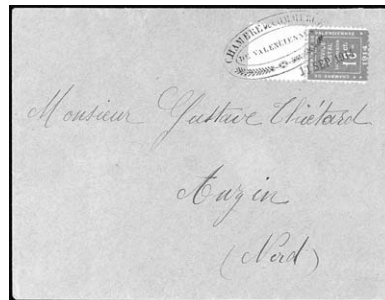 CHAMBRE DE COMMERCE
DE VALENCIENNES
VALENCIENNES
1914
Monsieur Gustave Thiétard
Anzin
(Nord)